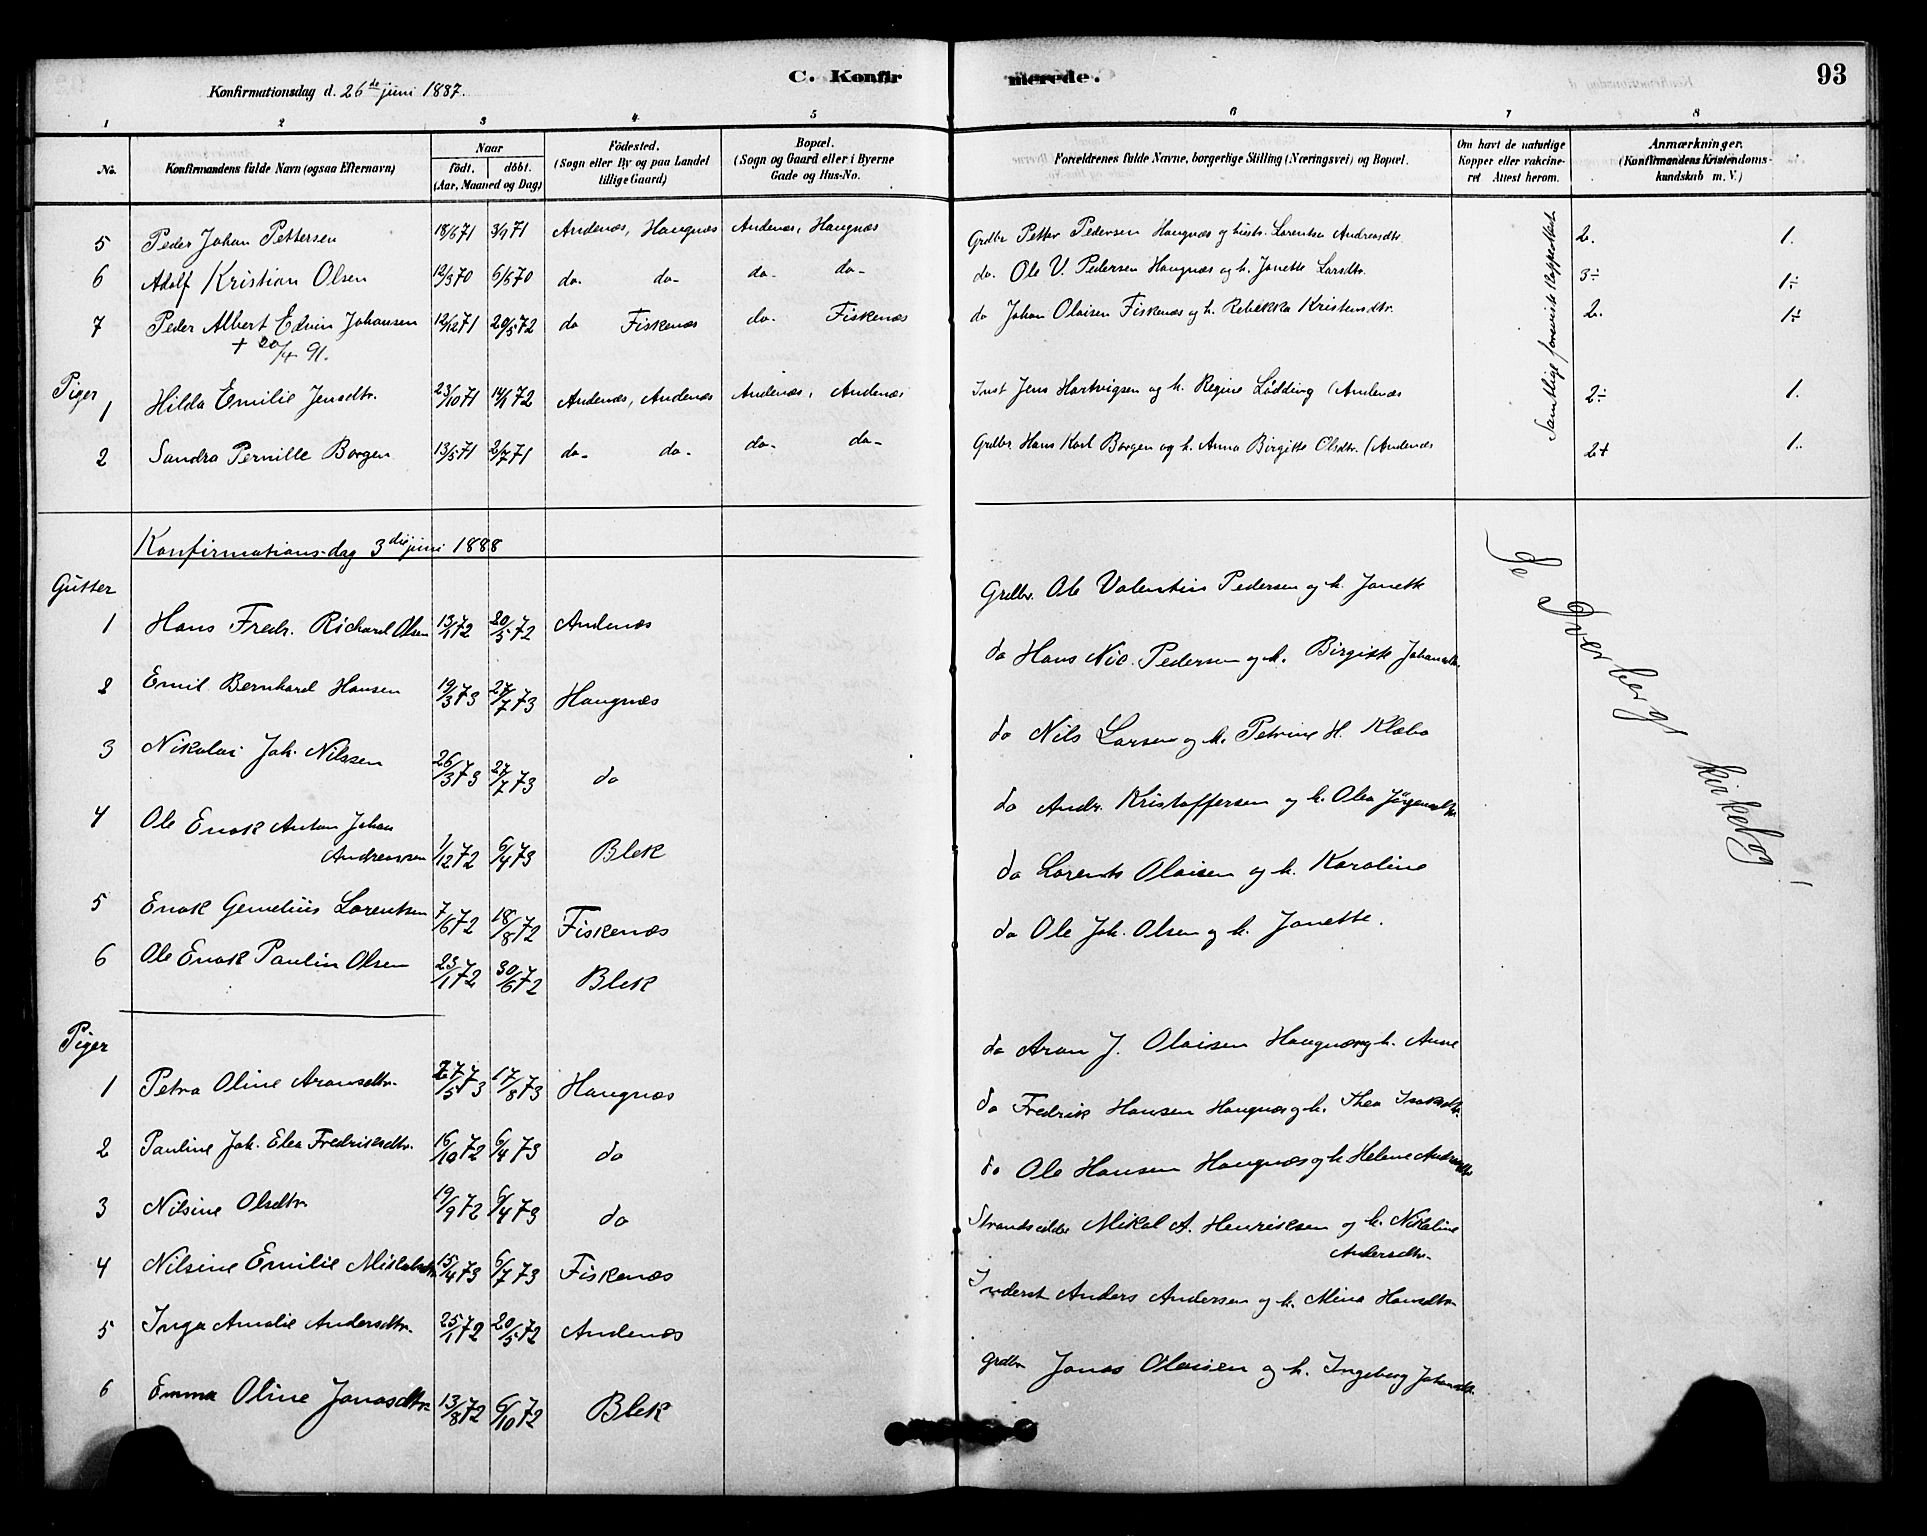 C. Konfirmerede. 93
Konfirmationsdag d. 26de juni 1887.
1 2 3 4 5 6 7 8
No. Konfirmandens fulde Navn (ogsaa Efternavn) Naar födt. döbt. (Aar, Maaned og Dag) Födested. (Sogn eller By og paa Landet tillige Gaard) Bopæl. (Sogn og Gaard eller i Byerne Gade og Hus-No. Forældrenes fulde Navne, borgerlige Stilling (Næringsvei) og Bopæl. Om havt de naturlige Kopper eller vakcineret Attest herom. Anmærkninger. (Konfirmandens Kristendomskundskab m. V.)
5 Peder Johan Pettersen 18/6 71 3/9 71 Andenæs, Haugnæs Andenæs, Haugnæs Grdbr Petter Pedersen Haugnæs og hustr. Lorentse Andreasdtr. 2. 1.
6 Adolf Kristian Olsen 12/3 70 6/6 70 do. do- do- do- do. Ole V. Pedersen Haugnæs og h. Janette Larsdtr. 3÷ 1÷
7 Peder Albert Edvin Johansen 12/12 71 20/5 72 do Fiskenæs do. Fiskenæs do Johan Olaisen Fiskenæs og h. Rebekka Kristensdtr. 2. 1÷
+ 20/4 91.
Samtlige forevist Koppeattest
Piger
1 Hilda Emilie Jensdtr. 23/10 71 14/1 72 Andenæs, Andenæs Andenæs, Andenæs Inst Jens Hartvigsen og h. Regine Lödding (Andenæs 2÷ 1.
2 Sandra Pernille Borgen 13/5 71 2/7 71 do- do- do- do- Grdbr Hans Karl Borgen og h. Anna Birgitte Olsdtr. (Andenæs 2+ 1.
Konfirmations-dag 3die juni 1888
Se Dverbergs kirkebog
Gutter Grdbr. Ole Valentin Pedersen og h. Janette
1 Hans Fredr. Richard Olsen 13/1 72 20/5 72 Andenæs
do Hans Nic. Pedersen og h. Birgitte Johansdtr.
2 Emil Bernhard Hansen 19/3 73 27/7 73 Haugnæs
do Nils Larsen og h. Petrine H. Klæbo
3 Nikolai Joh. Nilssen 26/3 73 27/7 73 do
do Andr. Kristoffersen og h. Olea Jörgensdtr
4 Ole Enok Anton Johan
Andreassen 1/12 72 6/4 73 Blek
do Lorents Olaisen og h. Karoline
5 Enok Gemelius Lorentsen 7/6 72 18/8 72 Fiskenæs
do Ole Joh. Olsen og h. Janette.
6 Ole Enok Paulin Olsen 23/1 72 30/6 72 Blek
Piger do Aron J. Olaisen Haugnæs og h. Anne
1 Petra Oline Aronsdtr. 27/5 73 17/8 73 Haugnæs
do Fredrik Hansen Haugnæs og h. Thea Isaksdtr.
2 Pauline Joh. Elea Fredriksdtr. 16/10 72 6/4 73 do
do Ole Hansen Haugnæs og h. Helene Andersdtr
3 Nilsine Olsdtr. 19/9 72 6/4 73 do
Strandsidder Mikal A. Henriksen og h. Nikoline
Andersdtr.
4 Nilsine Emilie Mikalsdtr 15/4 73 6/7 73 Fiskenæs
Inderst Anders Andersen og h. Mina Hansdtr
5 Inga Amalie Andersdtr. 25/1 72 20/5 72 Andenæs
Grdbr Jonas Olaisen og h. Ingeborg Johansdtr.
6 Emma Oline Jonasdtr. 13/8 72 6/10 72 Blek